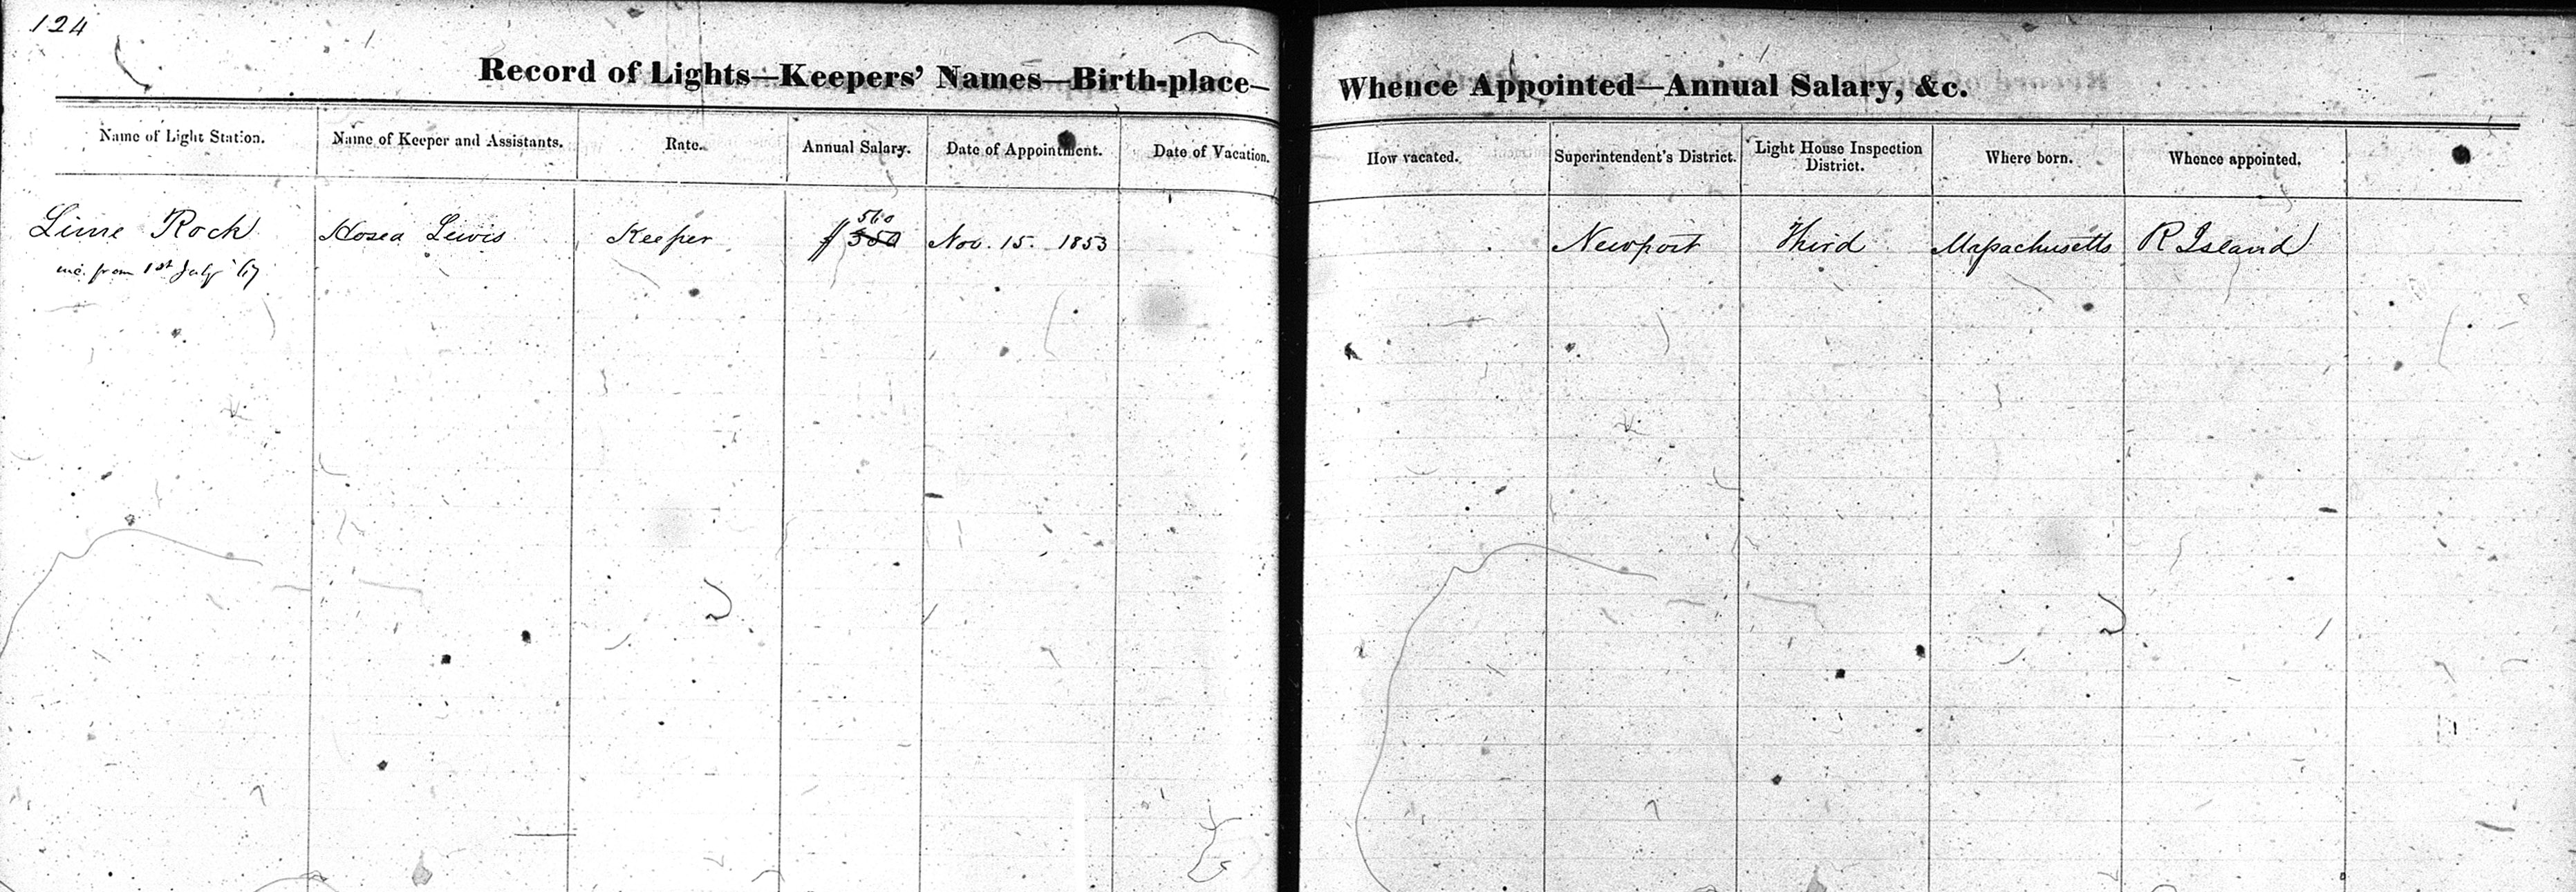 124
Record of Lights—Keepers' Names—Birth-place—
Whence Appointed—Annual Salary, &c.
Name of Light Station.
Name of Keeper and Assistants.
Rate.
Annual Salary.
Date of Appointment.
Date of Vacation.
How vacated.
Superintendent's District.
Light House Inspection
District.
Where born.
Whence appointed.
560
Lime Rock
Hosea Lewis
Keeper
$ 350
Nov. 15. 1853
Newport
Third
Massachusetts
R Island
inc. from 1st July '67